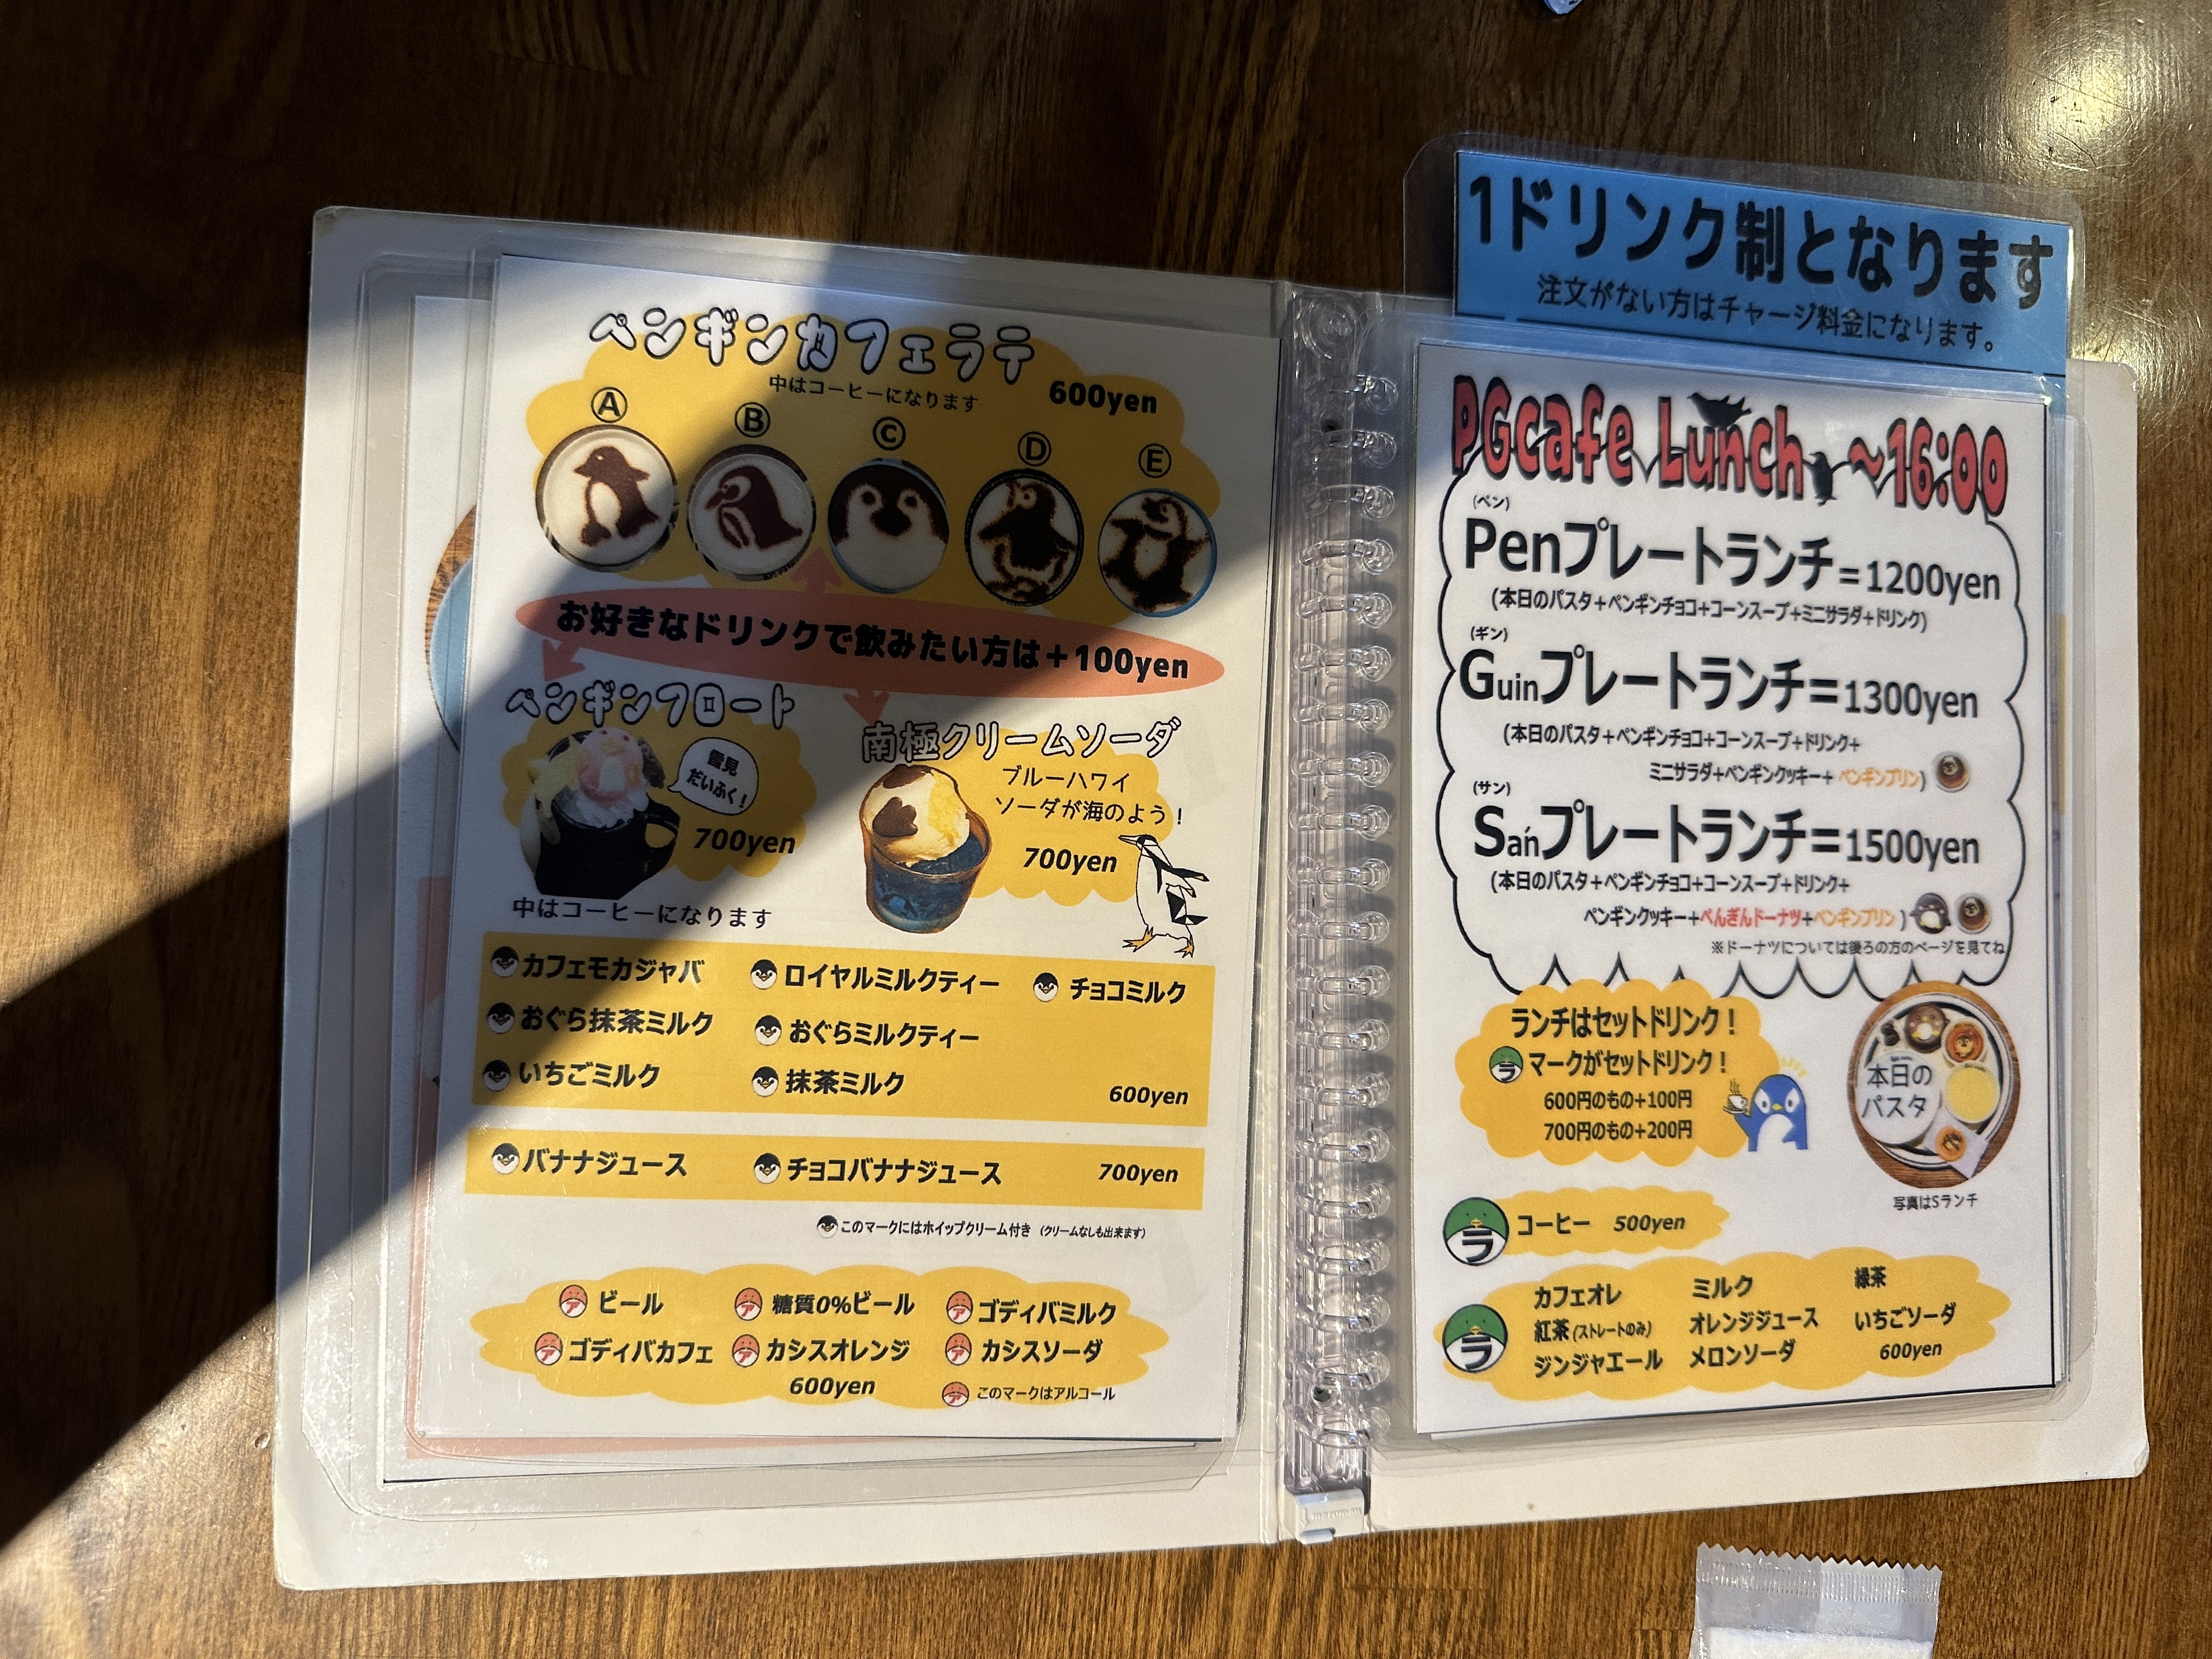 ペンギンカフェラテ
中はコーヒーになります
600yen
Ⓐ Ⓑ Ⓒ Ⓓ Ⓔ
お好きなドリンクで飲みたい方は＋100yen
ペンギンフロート
雪見
だいふく！
700yen
中はコーヒーになります
南極クリームソーダ
ブルーハワイ
ソーダが海のよう！
700yen
カフェモカジャバ ロイヤルミルクティー チョコミルク
おぐら抹茶ミルク おぐらミルクティー
いちごミルク 抹茶ミルク 600yen
バナナジュース チョコバナナジュース 700yen
このマークにはホイップクリーム付き (クリームなしも出来ます)
ア ビール ア 糖質0%ビール ア ゴディバミルク
ア ゴディバカフェ ア カシスオレンジ ア カシスソーダ
600yen
ア このマークはアルコール
1ドリンク制となります
注文がない方はチャージ料金になります。
PGcafe Lunch ～16:00
(ペン)
Penプレートランチ=1200yen
(本日のパスタ+ペンギンチョコ+コーンスープ+ミニサラダ+ドリンク)
(ギン)
Guinプレートランチ=1300yen
(本日のパスタ+ペンギンチョコ+コーンスープ+ドリンク+
ミニサラダ+ペンギンクッキー+ ペンギンプリン)
(サン)
Sańプレートランチ=1500yen
(本日のパスタ+ペンギンチョコ+コーンスープ+ドリンク+
ペンギンクッキー+ぺんぎんドーナツ+ペンギンプリン )
※ドーナツについては後ろの方のページを見てね
ランチはセットドリンク！
ラ マークがセットドリンク！
600円のもの+100円
700円のもの+200円
本日の
パスタ
写真はSランチ
ラ コーヒー 500yen
ラ
カフェオレ ミルク 緑茶
紅茶(ストレートのみ) オレンジジュース いちごソーダ
ジンジャエール メロンソーダ 600yen